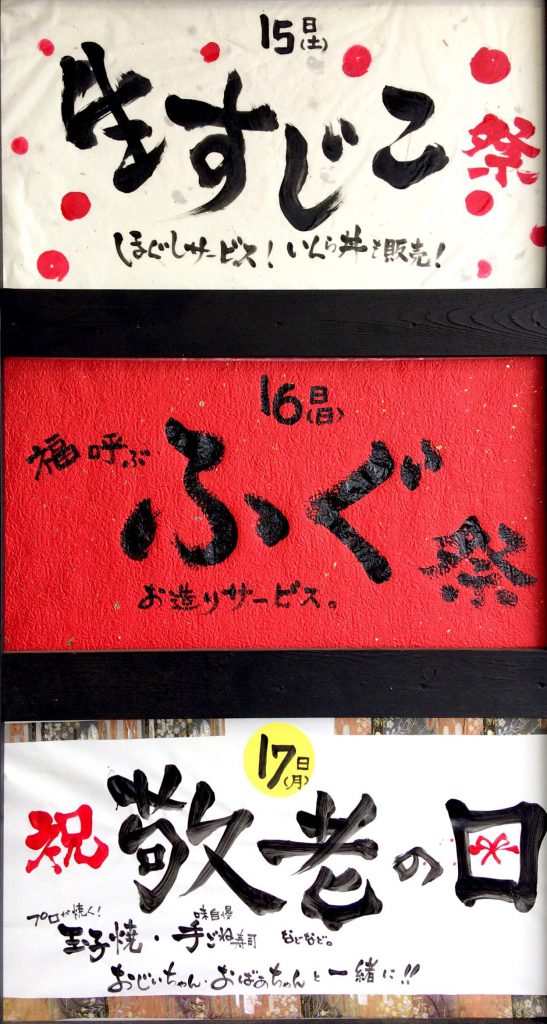 15日(土)
生すじこ祭
ほぐしサービス！いくら丼も販売！
16日(日)
福呼ぶ
ふぐ祭
お造りサービス。
17日(月)
祝敬老の日
プロが焼く！ 味自慢
玉子焼・手ごね寿司 などなど。
おじいちゃん・おばあちゃんと一緒に!!